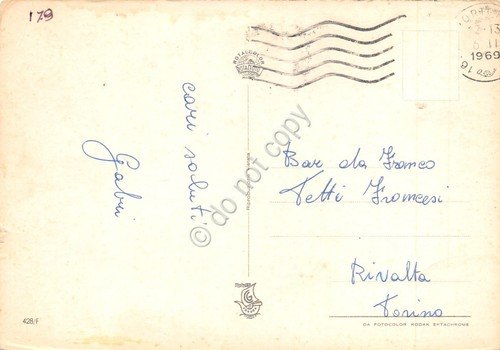 179
cari saluti
Gabri
ROTALCOLOR
1969
16
Bar da Franco
Tetti Francesi
Rivalta
Torino
428/F
DA FOTOCOLOR KODAK EKTACHROME
© do not copy